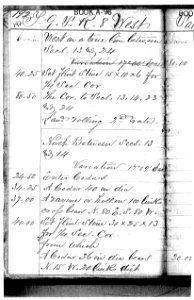 BOOK A-96
G. V. R. 8 West
West on a true line between
Secs. 13 & 24
Variation
40.25 Set Flint Stone 15 x 10 x 6 for
1/4 Sec Cor
80.50 The Cor to Secs. 13, 14, 23
& 24
Land rolling 2d rate
North Between Secs. 13
& 14
Variation
24.50 Enter Cedars
34.25 A Cedar 40 in dia
37.00 A ravine or hollow 100 links
N. 80 E. S. 80 W.
40.00 Set Flint Stone
for 1/4 Sec. Cor
from which
A Cedar 36 in dia bears
N. 15 W. 20 links dist